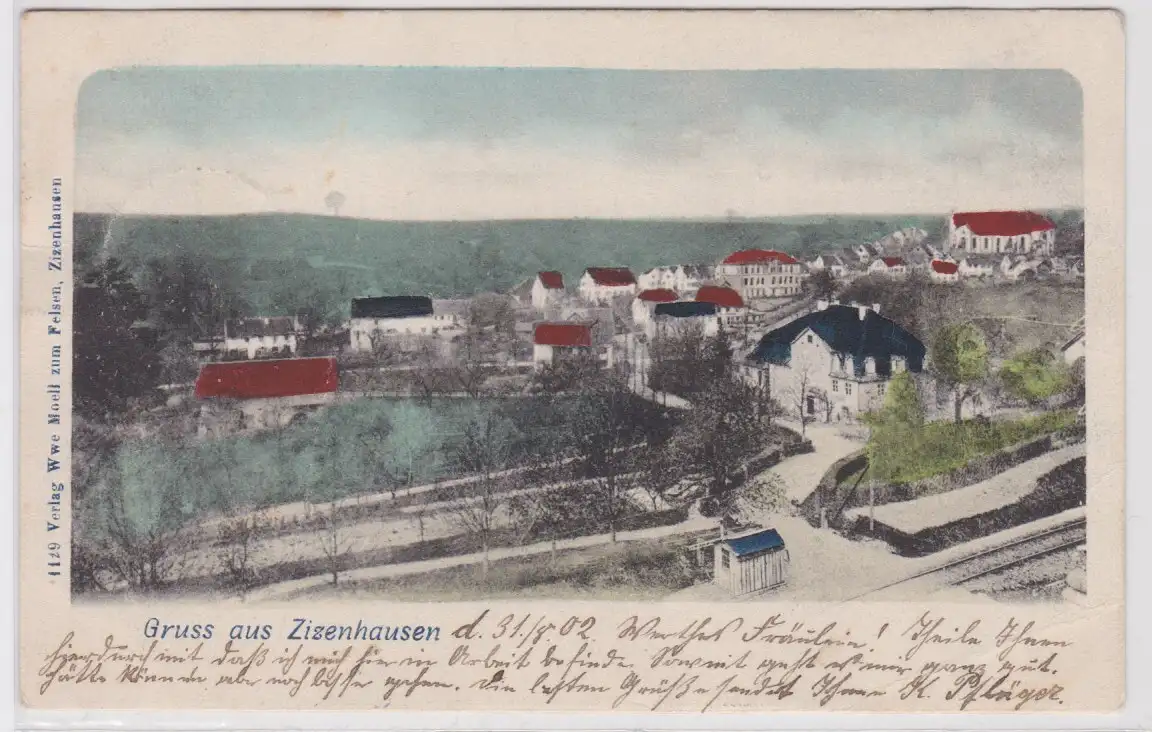 1129 Verlag Wwe Moell zum Felsen, Zizenhausen
Gruss aus Zizenhausen d. 31./8. 02. Werthes Fräulein! Theile Ihnen
hierdurch mit daß ich mich hier in Arbeit befinde. Soweit geht es mir ganz gut.
Hätte können aber noch besser gehen. Die besten Grüße sendet Ihnen K. Pfläger.